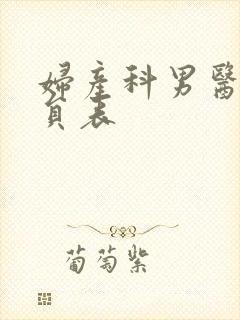 婦產科男醫
表
葡萄紫